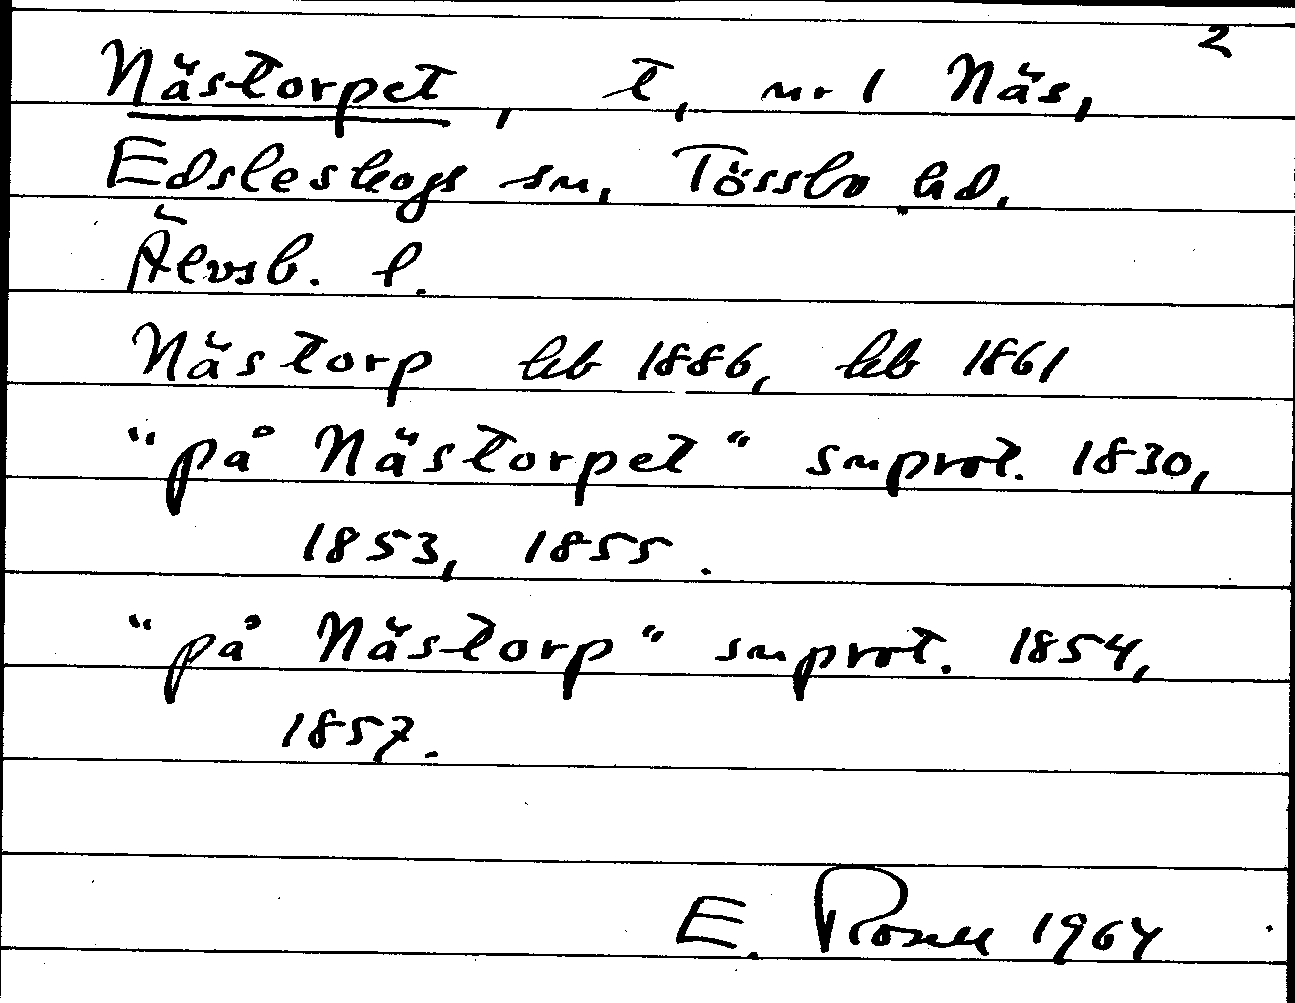 2
Nästorpet, t, nr 1 Näs,
Edsleskogs sn, Tössbo hd,
Älvsb. l.
Nästorp kb 1886, kb 1861
"på Nästorpet" snprot. 1830,
1853, 1855.
"på Nästorp" snprot. 1854,
1857.
E. Rosell 1964